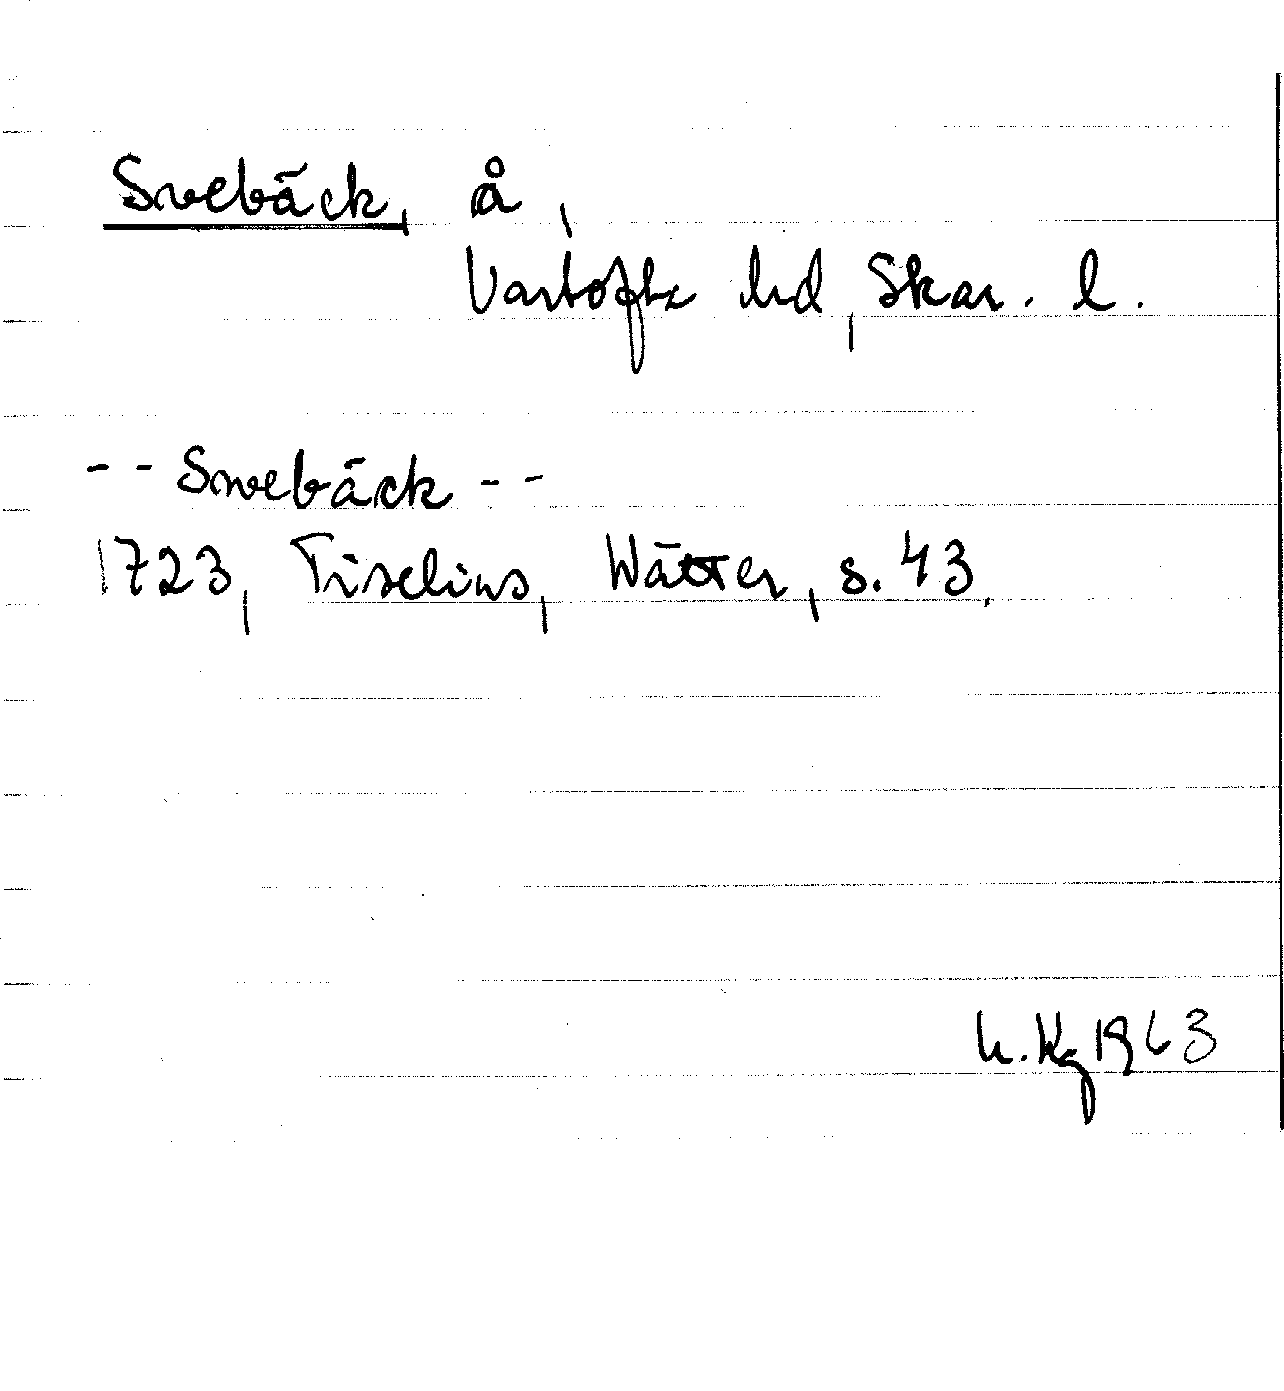 Svebäck, å,
Vartofta hd, Skar. l.
-- Swebäck --
1723, Tiselius, Wätter, s. 43.
L. Kg 1963